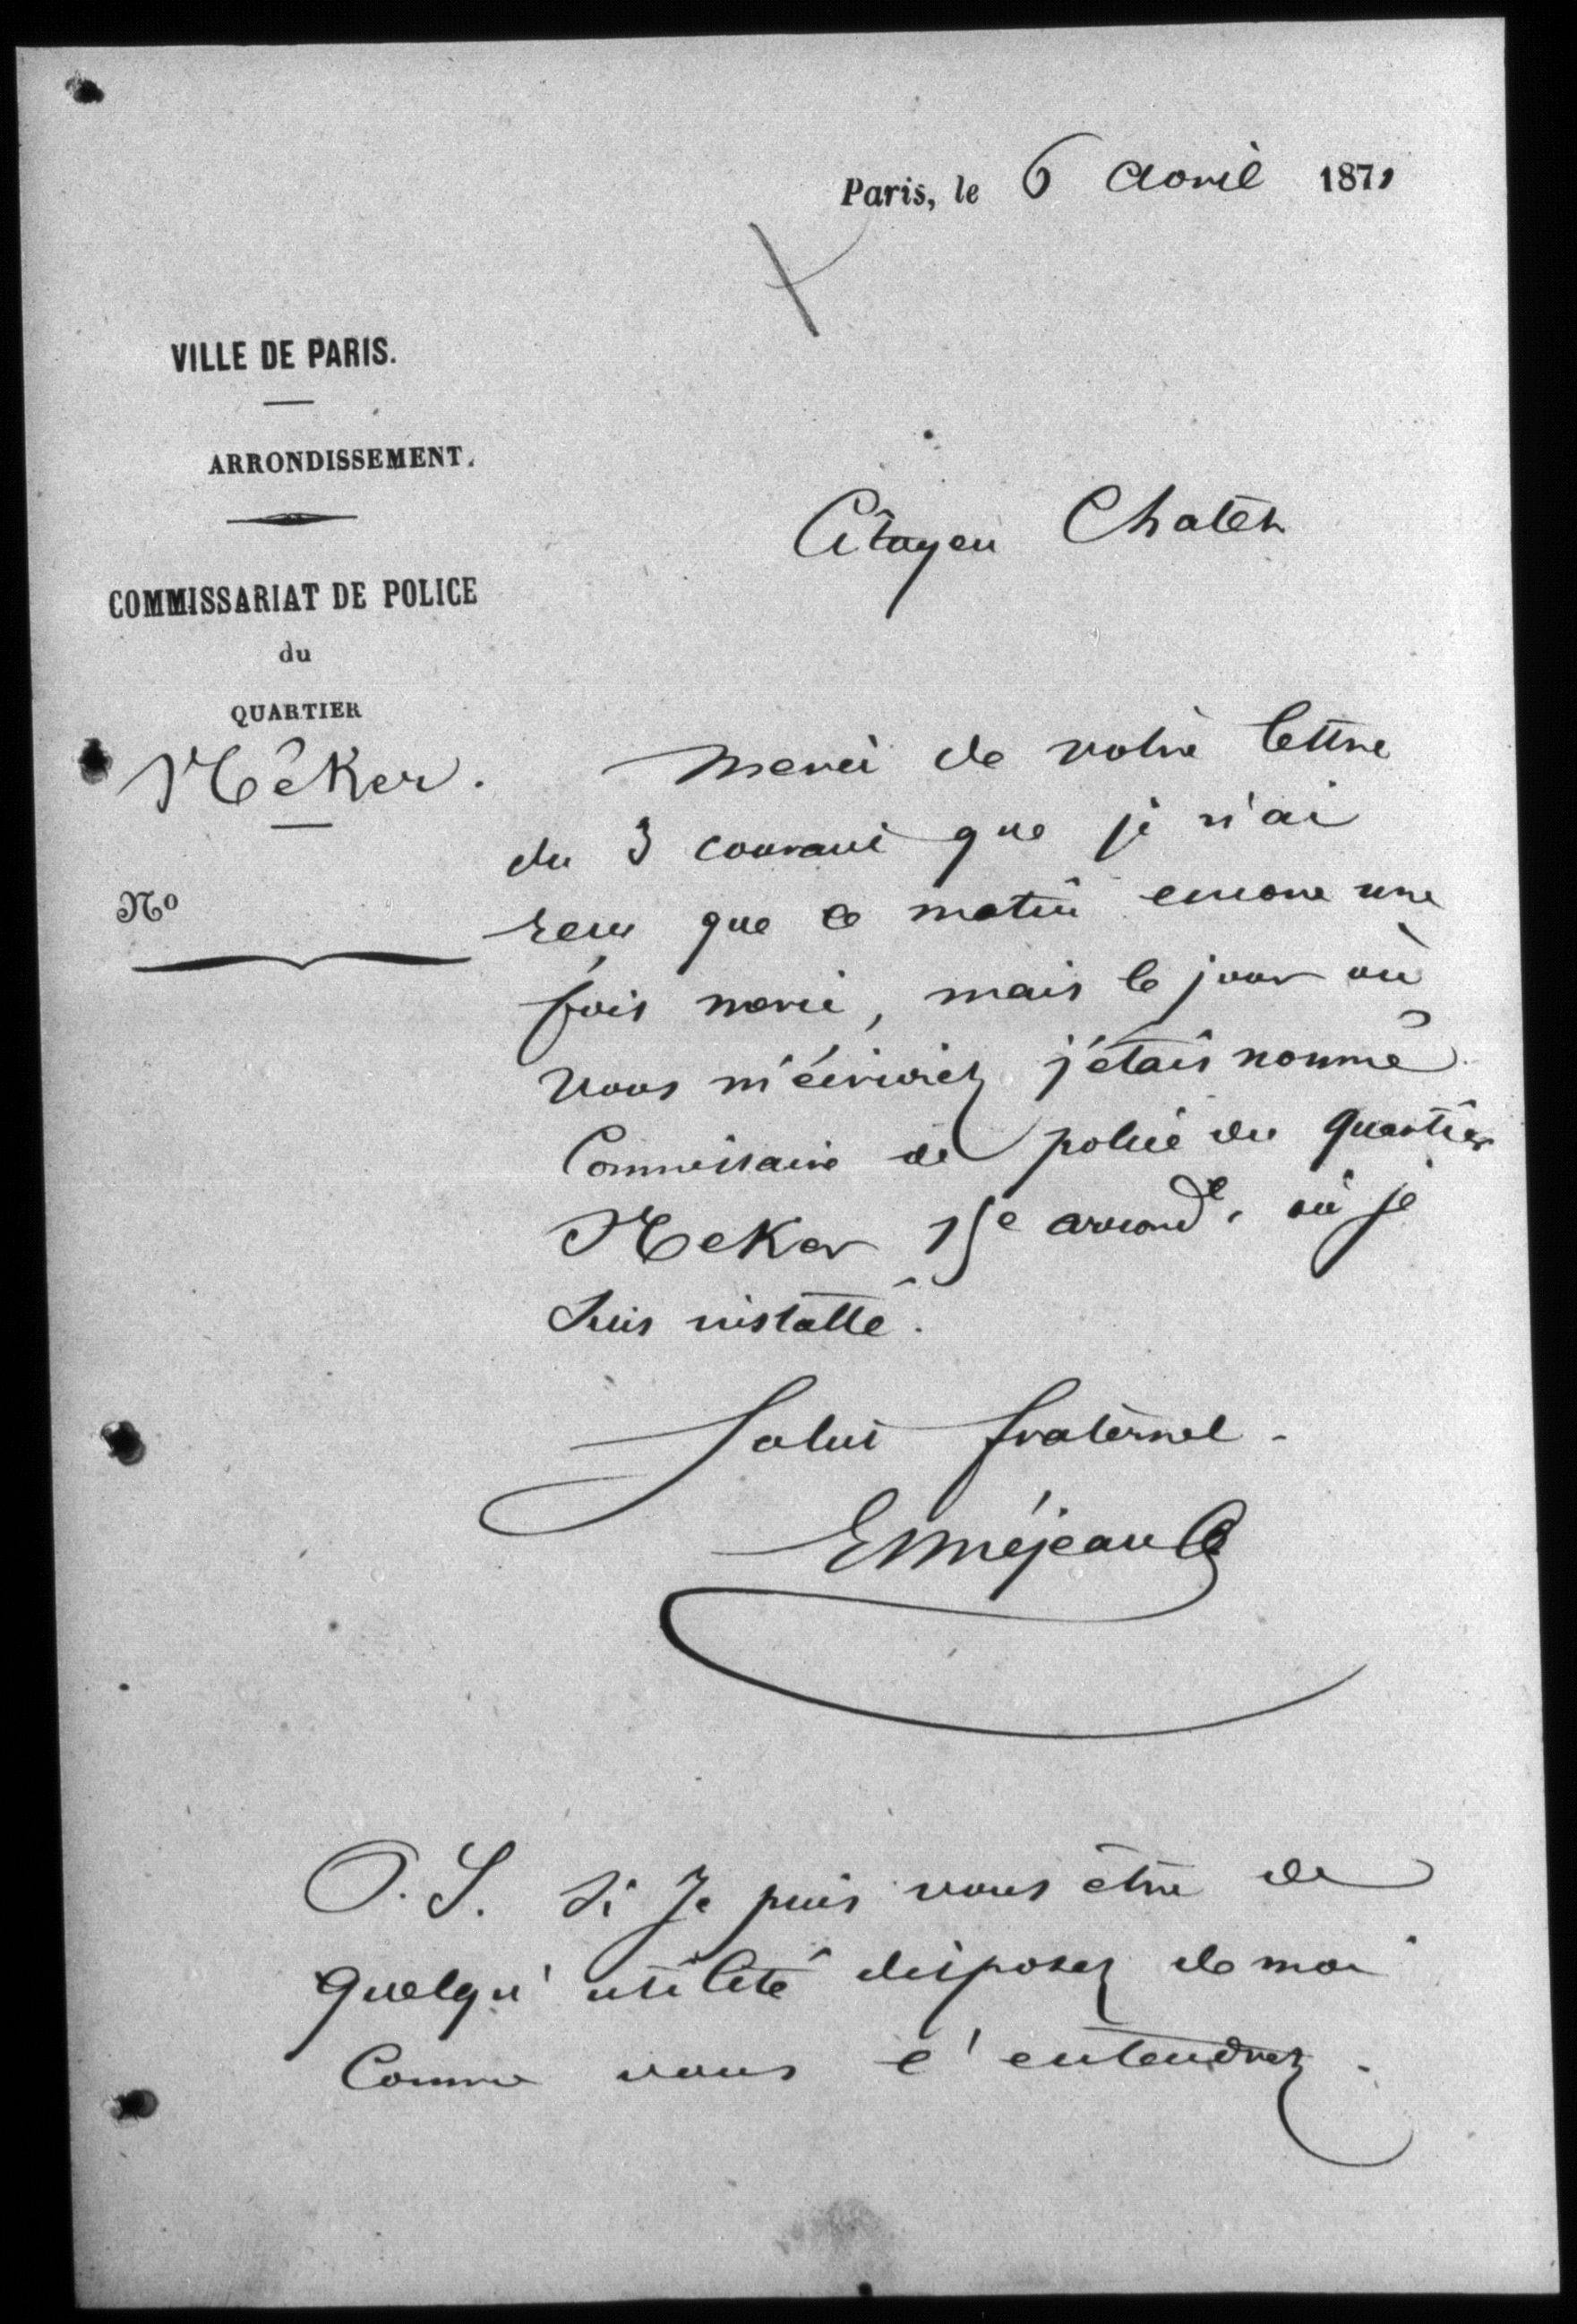 Paris, le 6 avril 1871
VILLE DE PARIS.
ARRONDISSEMENT.
Citoyen Chatel
COMMISSARIAT DE POLICE
du
QUARTIER
Néker.
N°
Merci de votre lettre
du 3 courant que je n'ai
reçu que ce matin encore une
fois merci, mais le jour où
vous m'écriviez j'étais nommé
Commissaire de police du quartier
Neker 15e arrond.t où je
suis installé.
Salut fraternel.
P.S. Si Je puis vous être de
quelqu'utilité disposez de moi
Comme vous l'entendrez.